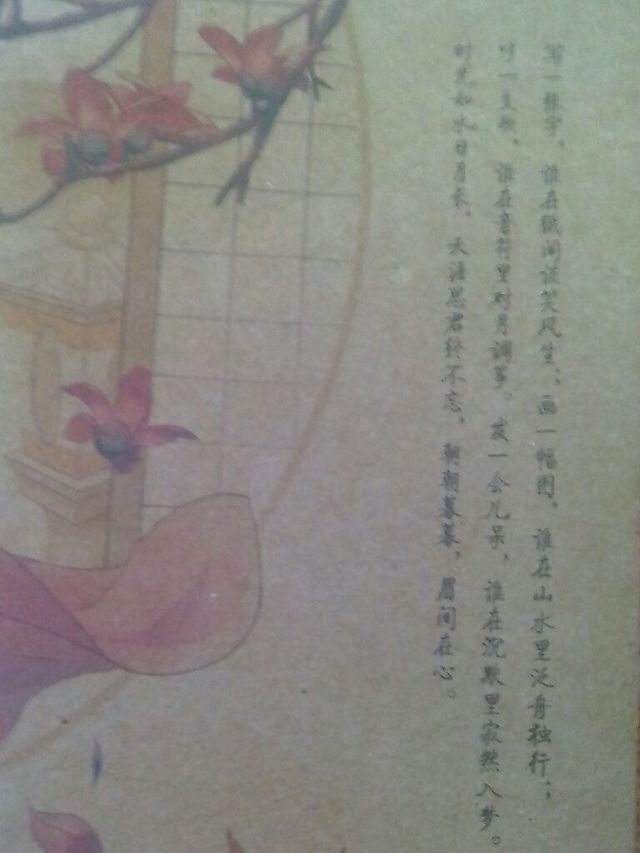 写一张字，谁在纸间谈笑风生。画一幅图，谁在山水里泛舟独行；
一支歌，谁在音符里对月调筝。发一会儿呆，谁在沉默里寂然入梦。
时光如水日月长，天涯思君终不忘，朝朝暮暮，眉间在心。